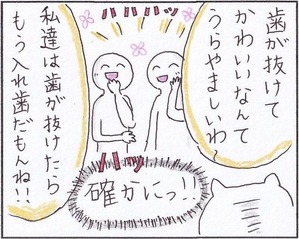 歯が抜けて
かわいいなんて
うらやましいわ
ハハハハッ
私達は歯が抜けたら
もう入れ歯だもんね!!
ハッ
確かにっ!!